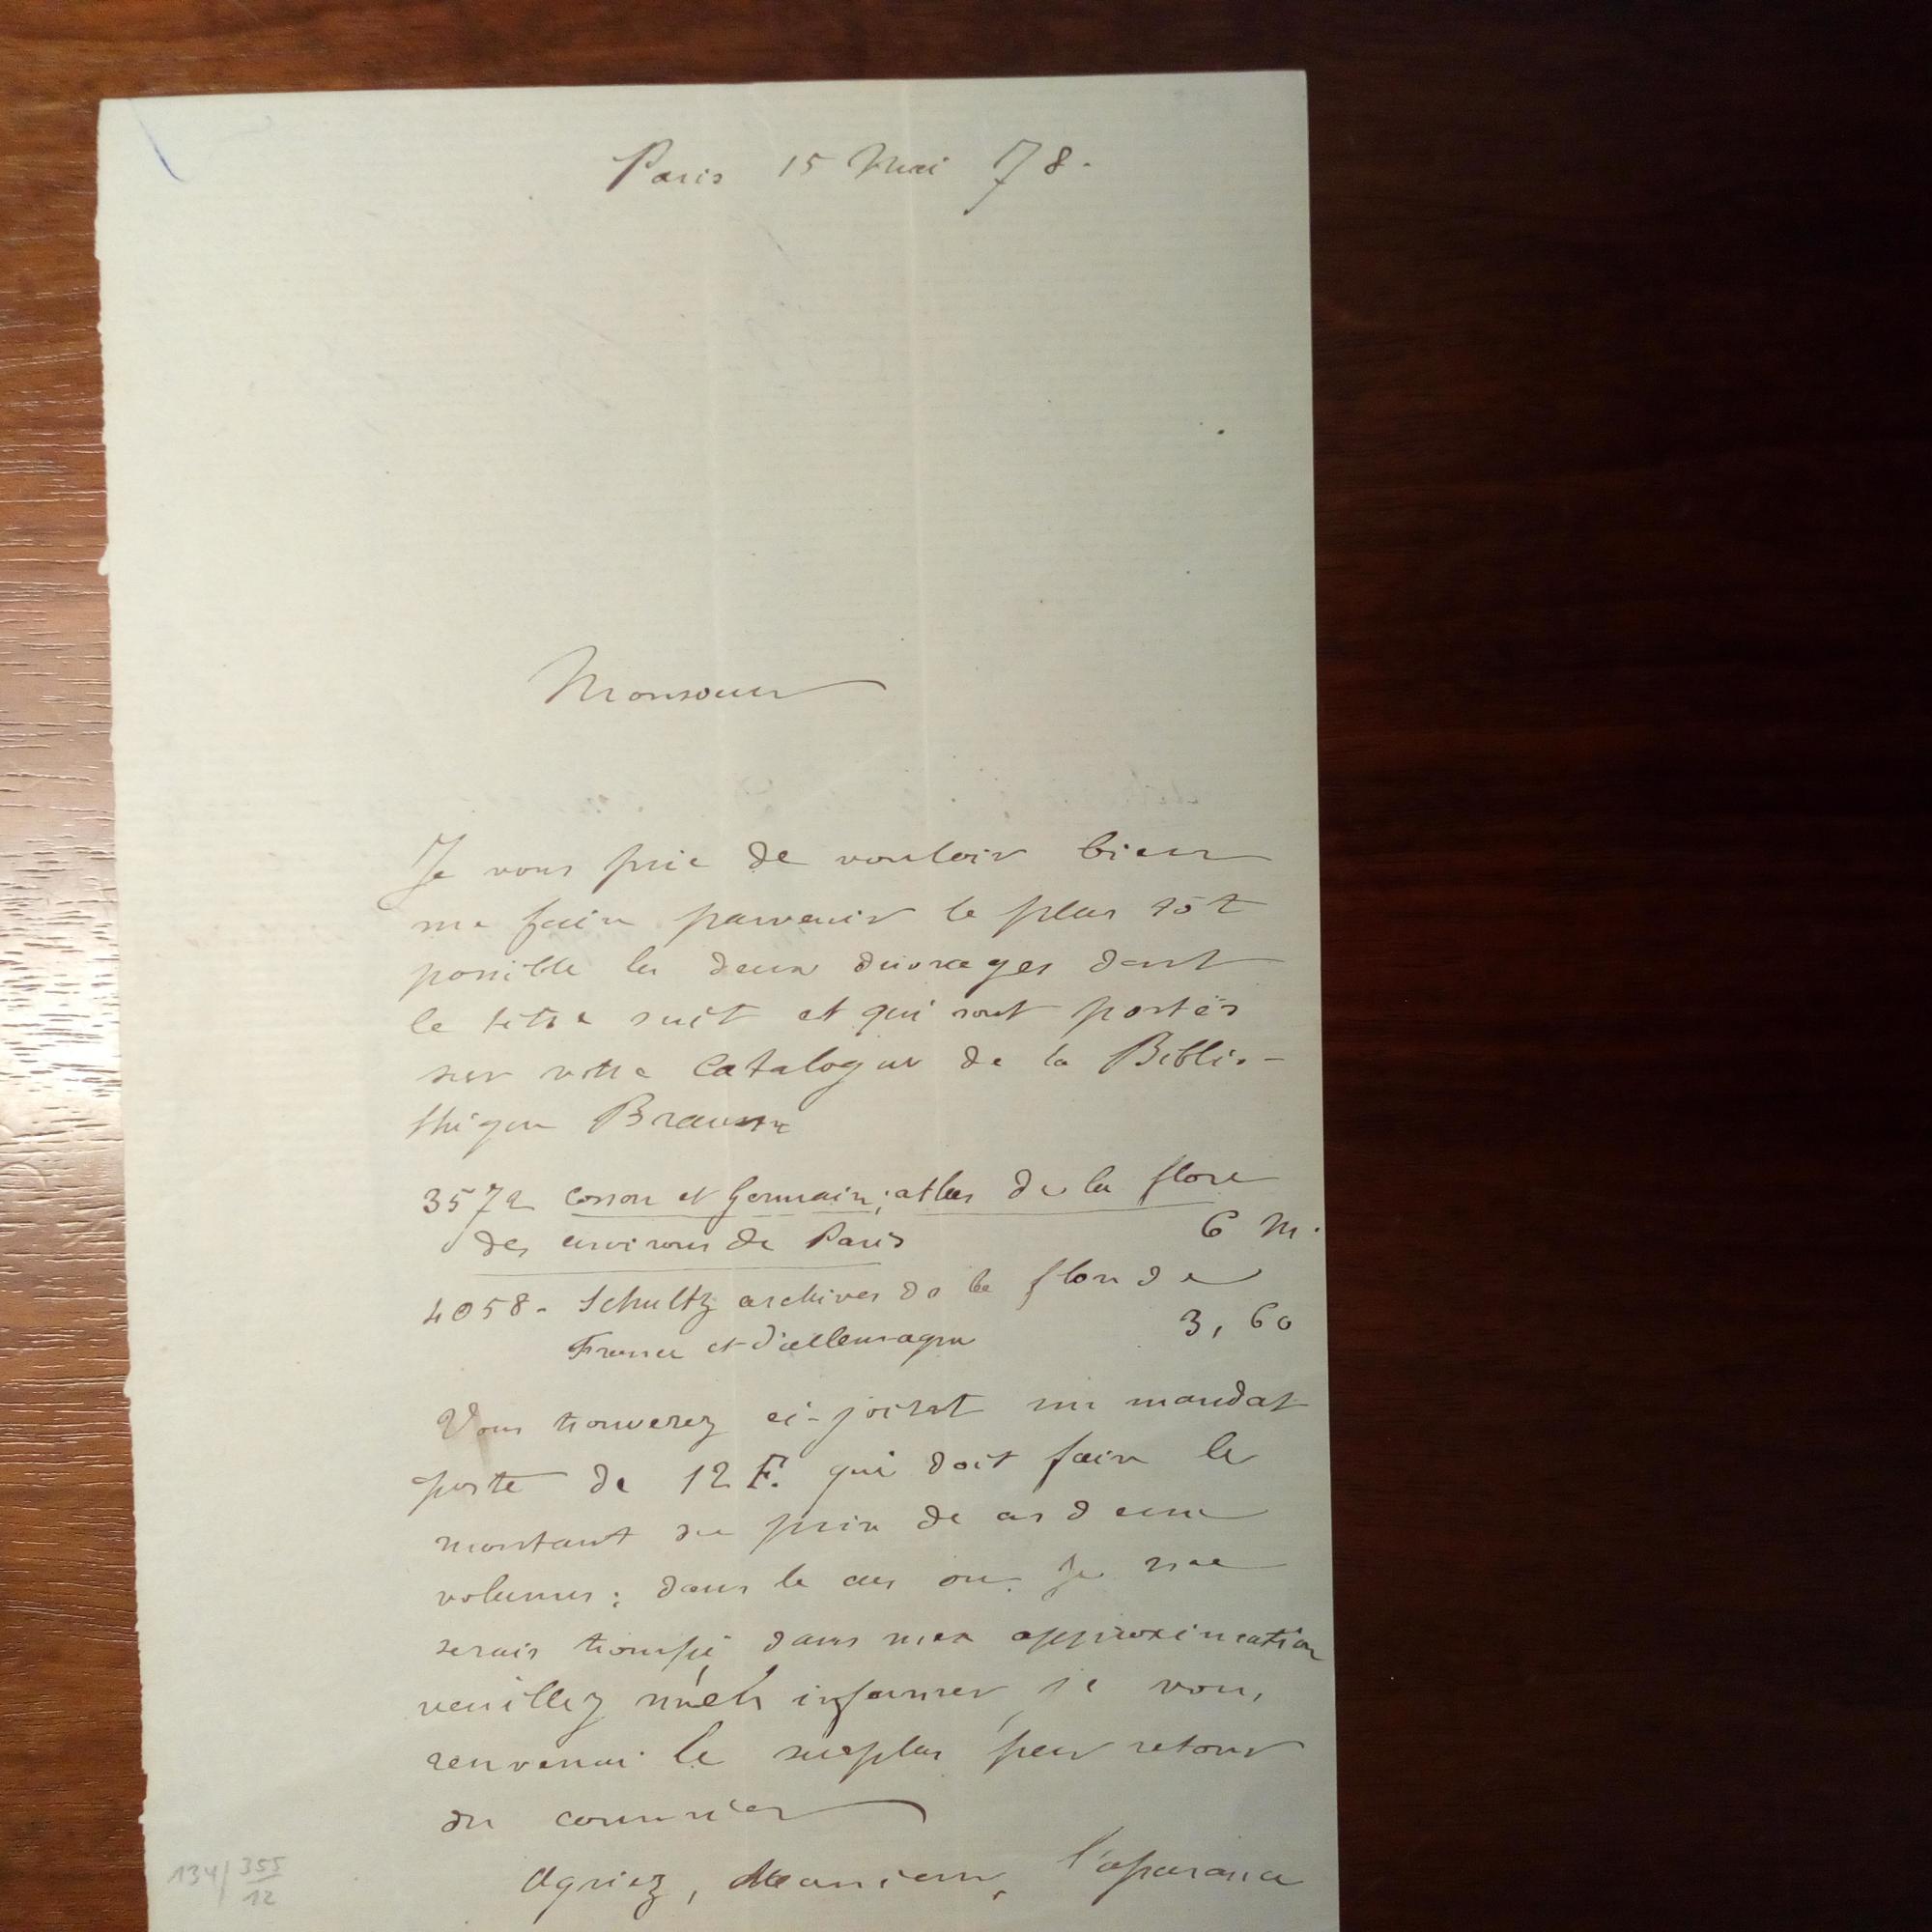 Paris 15 Mai 78.
Monsieur
Je vous prie de vouloir bien
me faire parvenir le plus tôt
possible les deux ouvrages dont
le titre suit et qui sont portés
sur votre catalogue de la Biblio-
thèque Braun
3572 Cosson et Germain; atlas de la flore
des environs de Paris 6 M.
4058 - Schultz archives de la flore de
France et d'allemagne 3,60
Vous trouverez ci-joint un mandat
poste de 12 F. qui doit faire le
montant du prix de ces deux
volumes; dans le cas ou je me
serais trompé dans mon approximation
veuillez m'en informer je vous
renverrai le surplus par retour
du courrier
Agréez, Monsieur, l'assurance
134/ 355
12